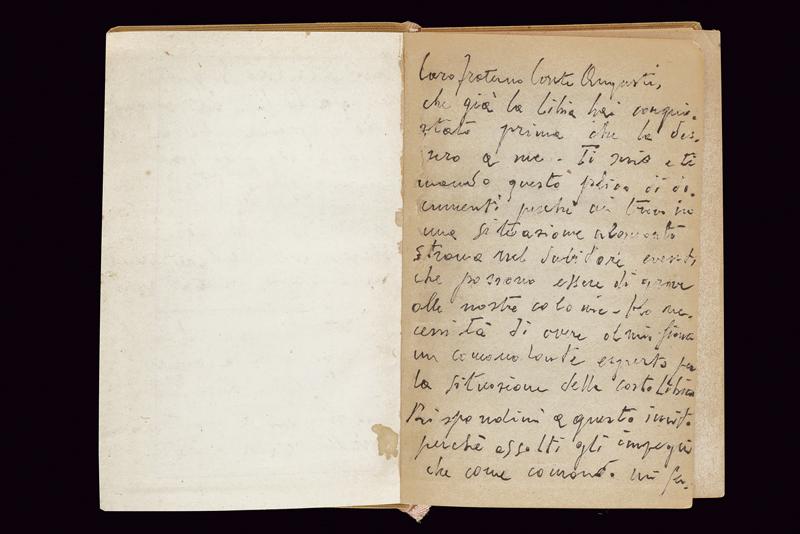 Caro fraterno Conte Augusti,
che già la Libia hai conqui-
stato prima che la des-
sero a me - Ti scrivo e ti
mando questo plico di do-
cumenti perchè mi trovo in
una situazione alquanto
strana nel subitore eventi
che possono essere di grave
alle nostre colonie - Ho ne-
cessità di avere al mio fianco
un comandante esperto per
la situazione della costa Libica
Rispondimi a questo invito
perchè assolti gli impegni
che come comand. mi fu-